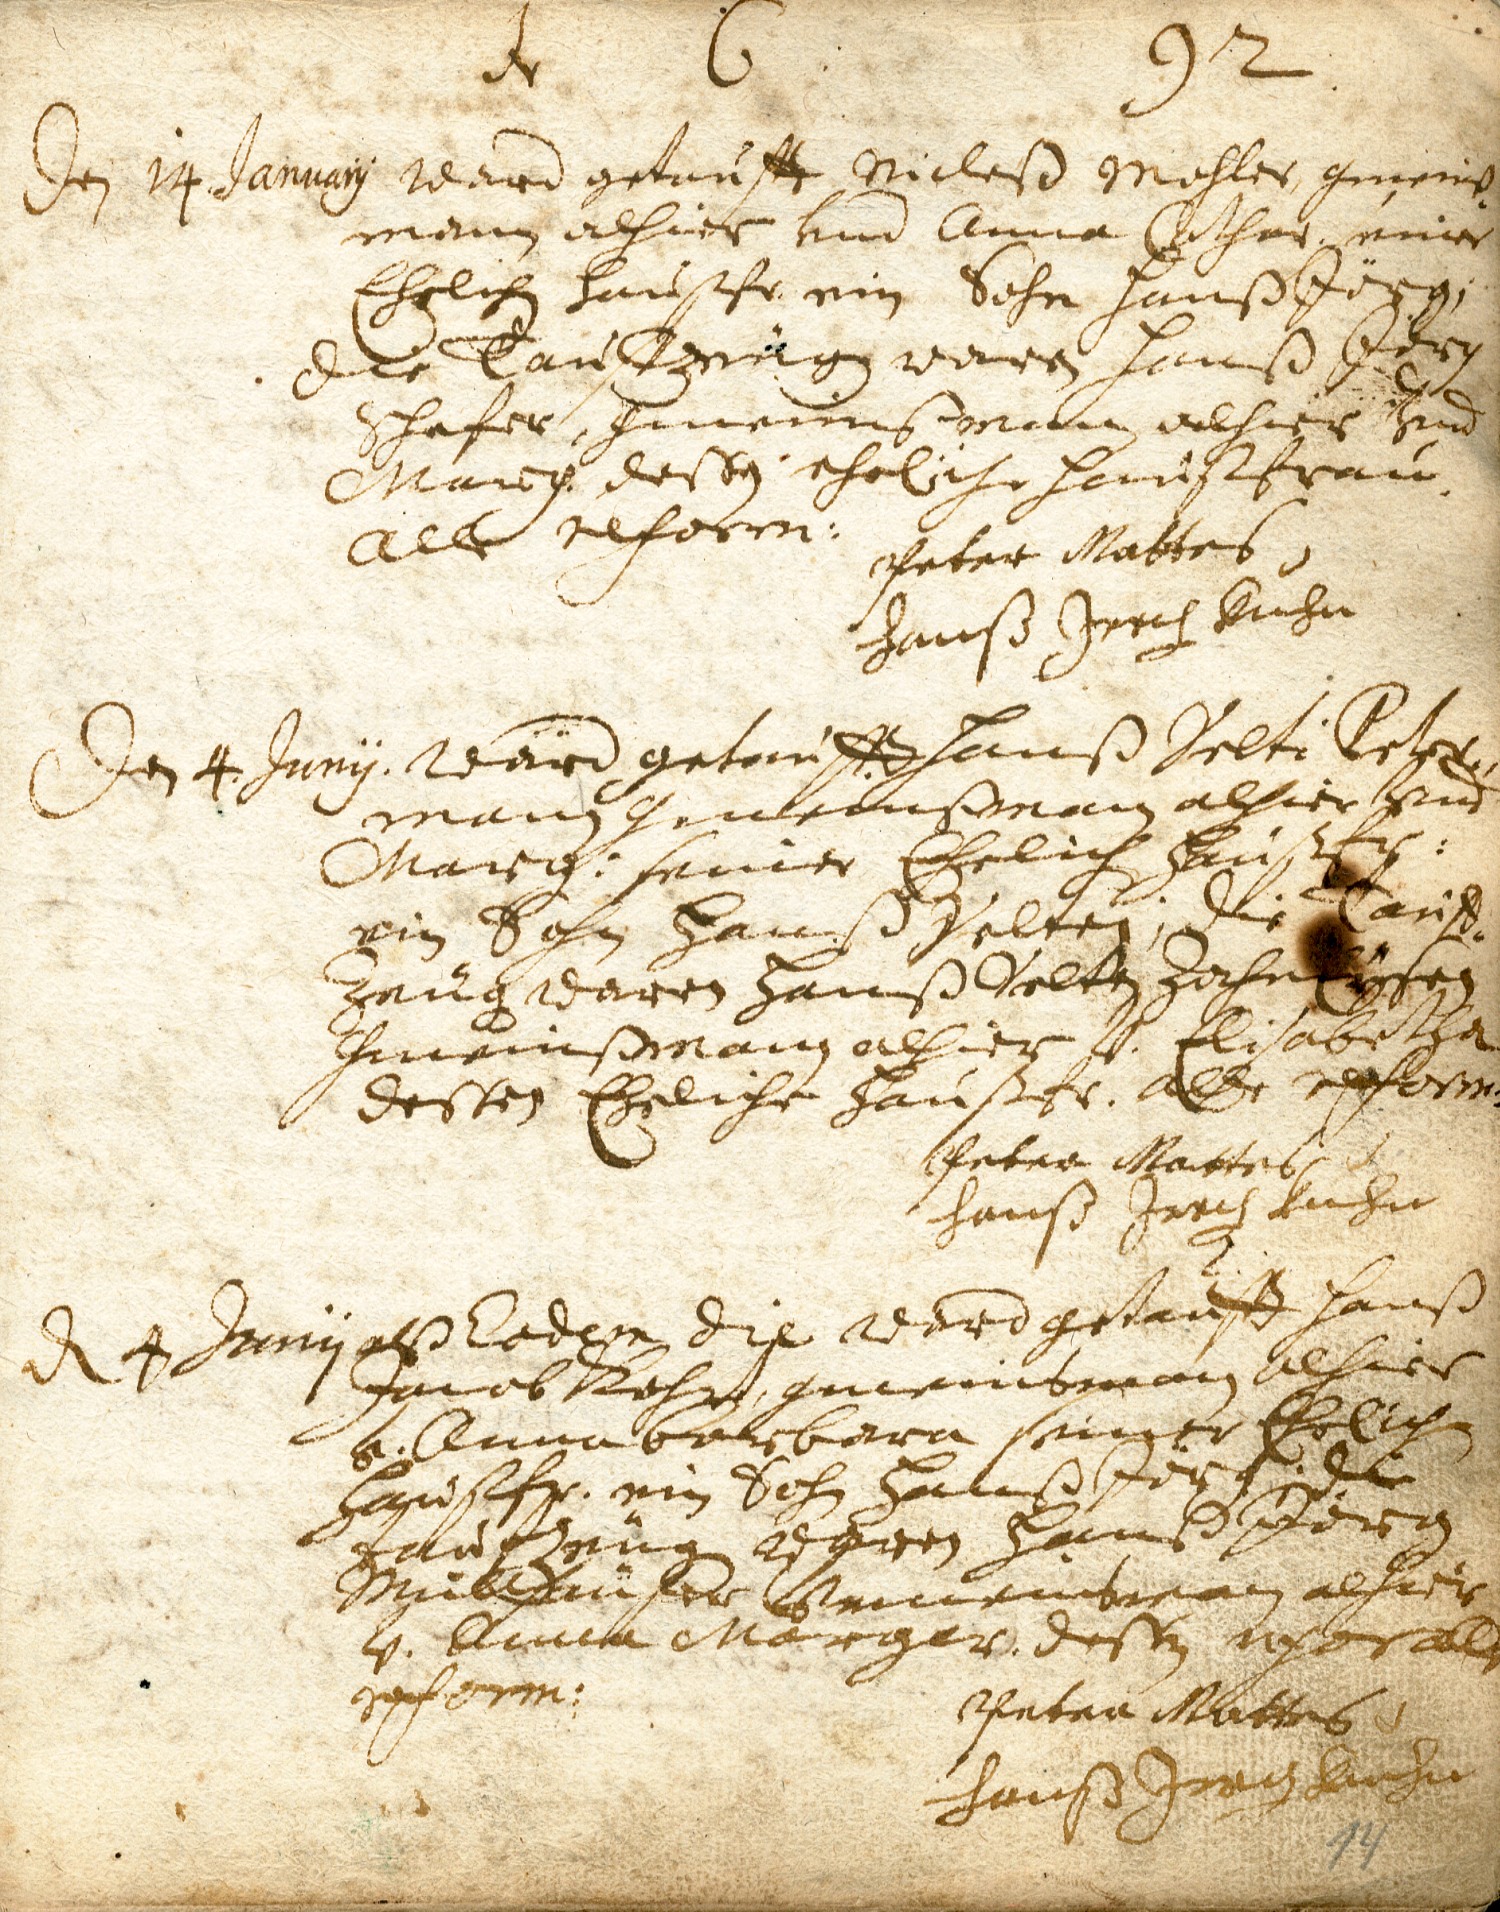 A 6 92
Den 14 January ward getaufft Nicleß Mohler, gmeins-
mann alhier und Anna Cathar. seiner
Ehelich haußfr. ein Sohn Hanß Jörg,
die Taufzeügen waren Hanß Jörg
Schefer, Gmeinsmann alhier und
Marg. dessen eheliche Haußfrau.
Alle reform:
Peter Mattes
Hanß Jerch Kuhn
Den 4. Junij. ward getaufft Hanß Velti Peter-
mann Gmeinßmann alhier und
Marg: seiner Ehelich Haußfr:
ein Sohn Hanß Velten, die Tauff-
Zeüg waren Hanß Velten
Gmeinßmann alhier v. Elisabetha
dessen Eheliche Haußfr. Alle reform:
Peter Mattes
Hanß Jerch Kuhn
D 4 Junij alß Eodem die ward getaufft Hanß
Jacob Kohr, gmeinsmann alhier
v. Anna barbara seiner Ehelichen
Haußfr. ein Sohn Hanß Jörg, die
Taufzeüg waren Hanß Jörg
Müllheüser Gemeinsmann alhier
v. Anna Margar. dessen uxor alle
reform:
Peter Mattes
Hanß Jerch Kuhn
14